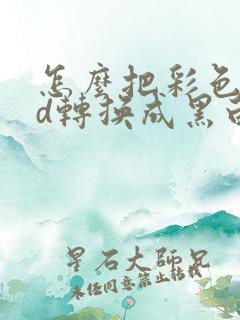 怎麼把彩色
d轉換成黑白
星石大師兄
未經同意禁止轉載